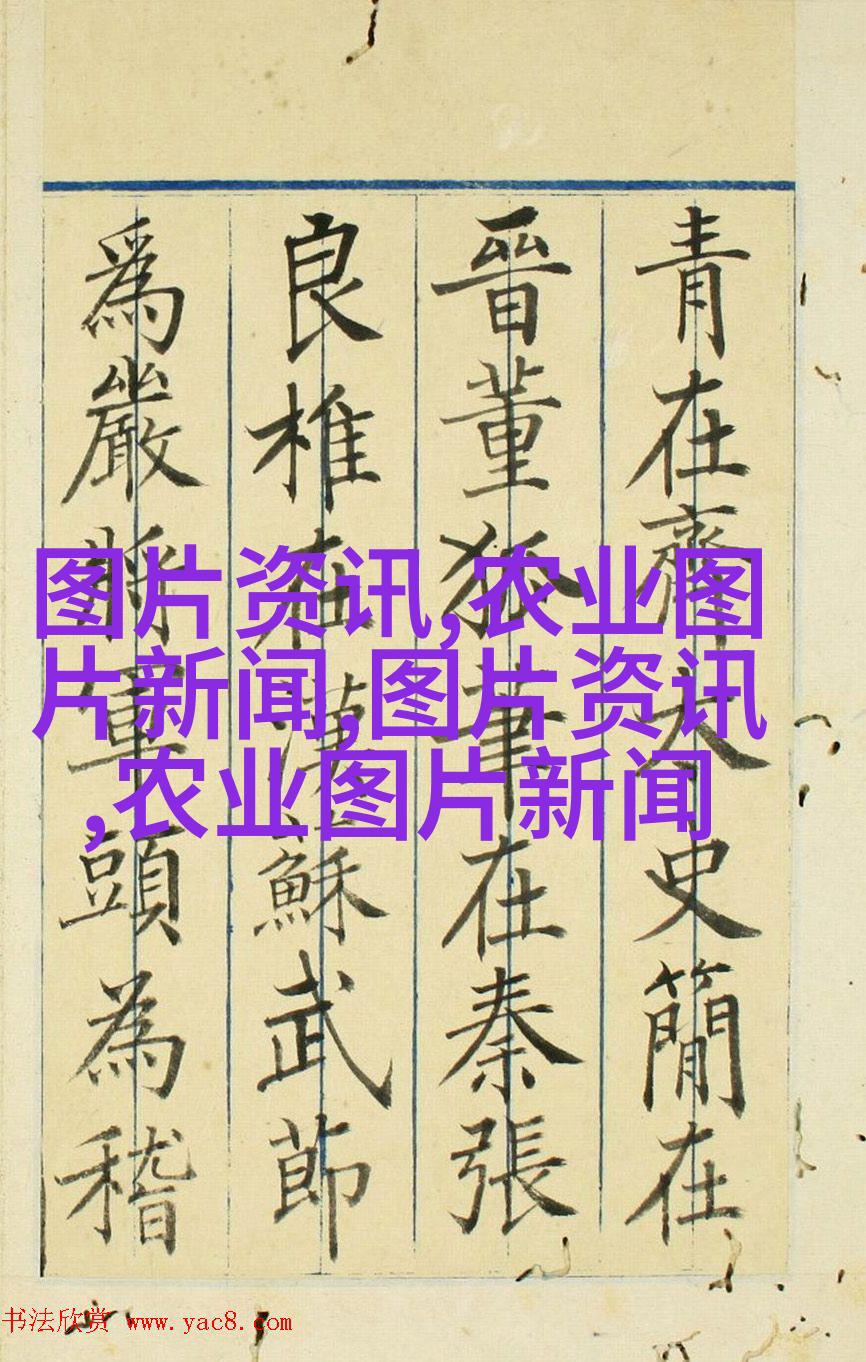 青在齊太史簡在
晉董狐筆在秦張
良椎在漢蘇武節
爲嚴將軍頭為稽
图片资讯,农业图
片新闻,图片资讯
,农业图片新闻
书法欣赏 www.yac8.com